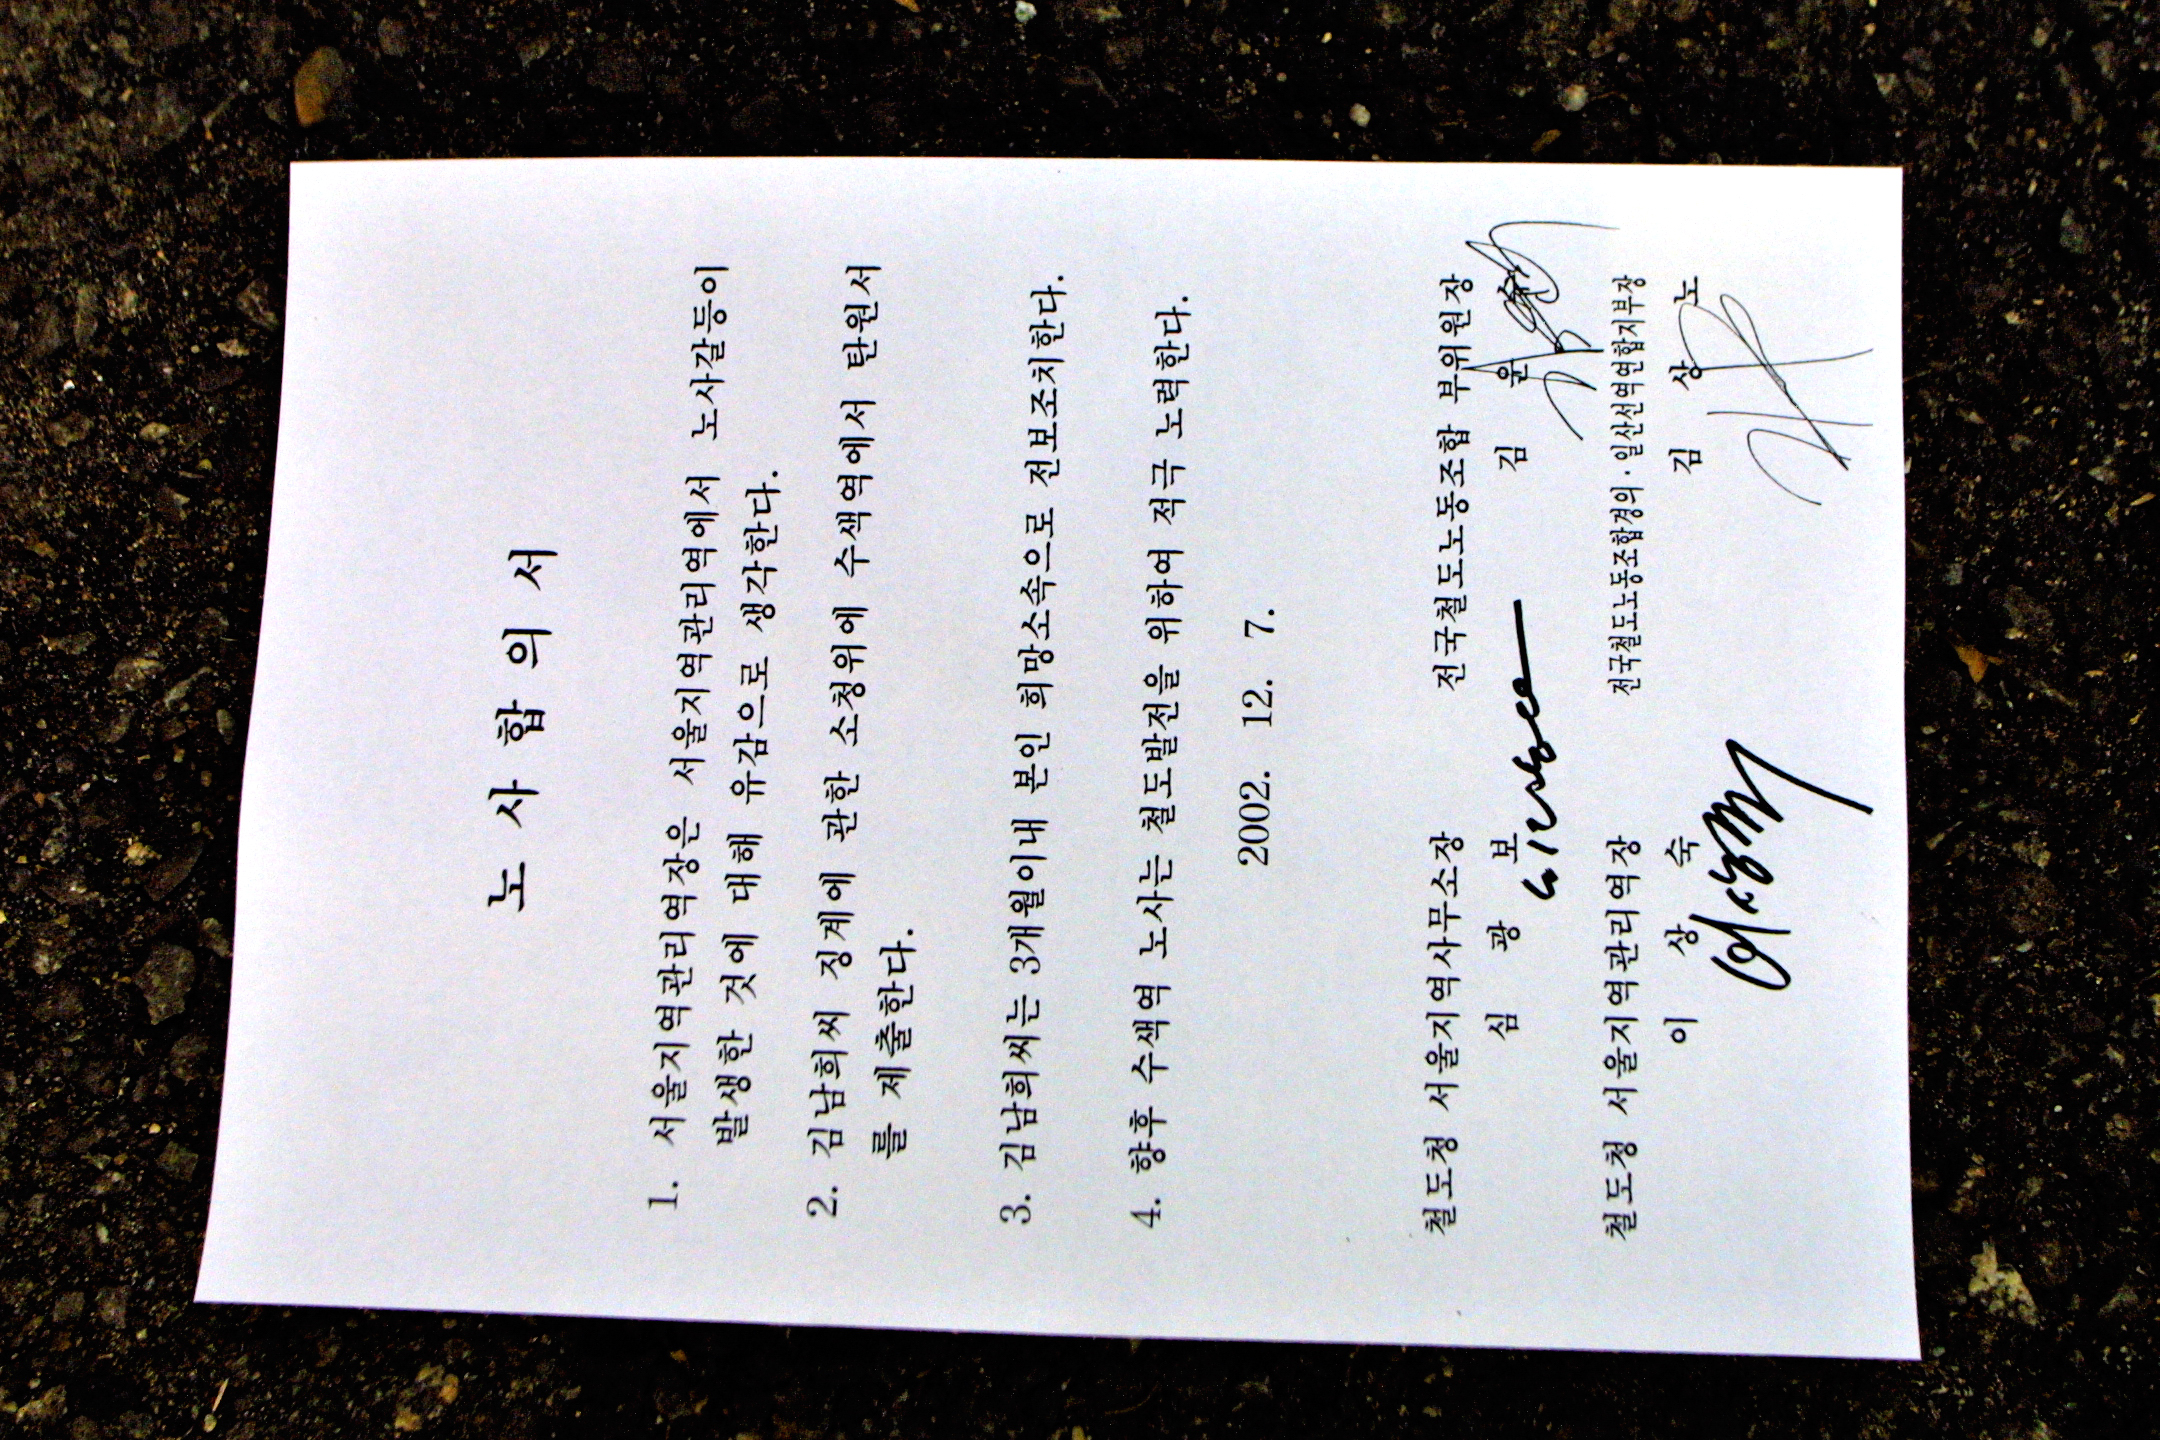 노 사 합 의 서
1. 서울지역관리역장은 서울지역관리역에서 노사갈등이
발생한 것에 대해 유감으로 생각한다.
2. 김남희씨 징계에 관한 소청위에 수색역에서 탄원서
를 제출한다.
3. 김남희씨는 3개월이내 본인 희망소속으로 전보조치한다.
4. 향후 수색역 노사는 철도발전을 위하여 적극 노력한다.
2002. 12. 7.
철도청 서울지역사무소장 전국철도노동조합 부위원장
심 광 보 김 윤
철도청 서울지역관리역장 전국철도노동조합경의·일산선역연합지부장
이 상 숙 김 상 노